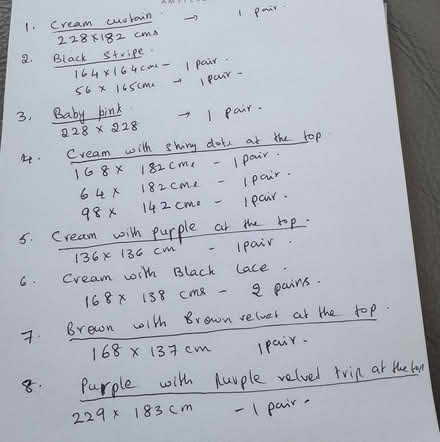 1. Cream curtain → 1 pair.
228x182 cms
2. Black Stripe.
164x164cms - 1 pair.
56 x 165cms → 1 pair -
3. Baby pink → 1 pair.
228 x 228
4. Cream with shiny dots at the top
168 x 182cms - 1 pair.
64 x 182cms - 1 pair.
98 x 142cms - 1 pair.
5. Cream with purple at the top.
136x 136 cm - 1 pair.
6. Cream with Black Lace.
168 x 138 cms - 2 pairs.
7. Brown with Brown velvet at the top.
168 x 137 cm 1 pair.
8. Purple with Purple velved trip at the top
229 x 183 cm - 1 pair.